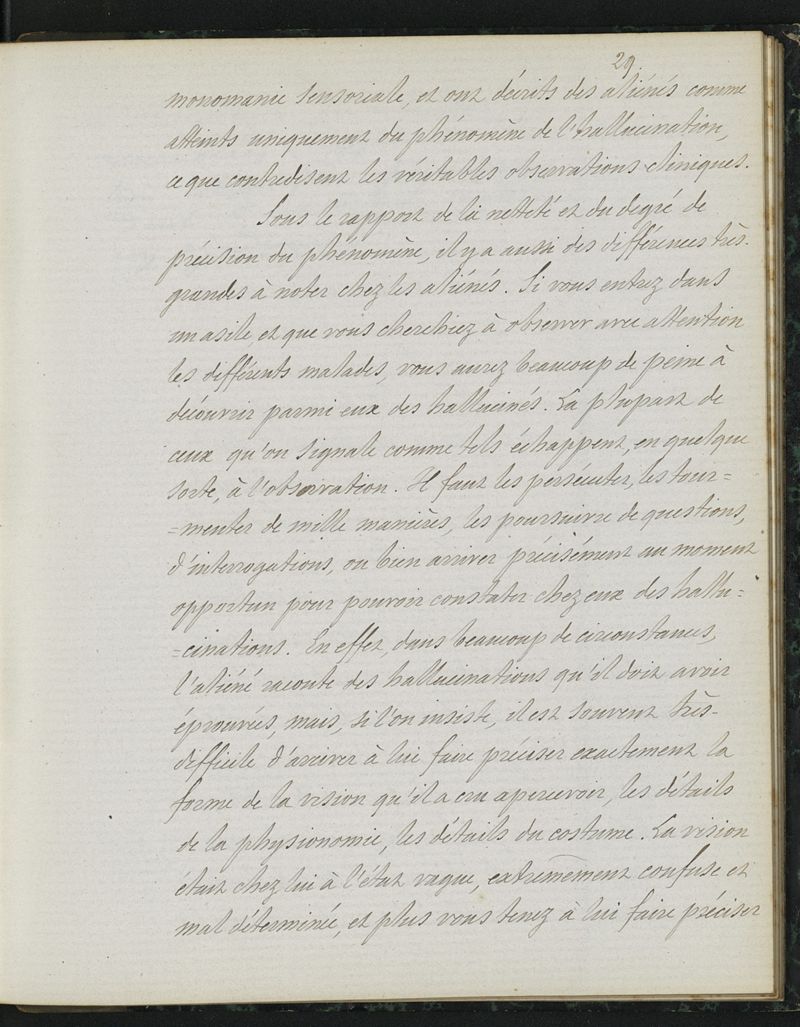 29.
monomanie sensoriale, et ont décrits des aliénés comme
atteints uniquement du phénomène de l'hallucination,
ce que contredisent les véritables observations cliniques.
Sous le rapport de la netteté et du degré de
précision du phénomène, il y a aussi des différences très-
grandes à noter chez les aliénés. Si vous entrez dans
un asile, et que vous cherchiez à observer avec attention
les différents malades, vous aurez beaucoup de peine à
découvrir parmi eux des hallucinés. La plupart de
ceux qu'on signale comme tels échappent, en quelque
sorte, à l'observation. Il faut les persécuter, les tour=
=menter de mille manières, les poursuivre de questions,
d'interrogations, ou bien arriver précisément au moment
opportun pour pouvoir constater chez eux des hallu=
=cinations. En effet, dans beaucoup de circonstances,
l'aliéné raconte des hallucinations qu'il doit avoir
éprouvées, mais, si l'on insiste, il est souvent très-
difficile d'arriver à lui faire préciser exactement la
forme de la vision qu'il a cru apercevoir, les détails
de la physionomie, les détails du costume. La vision
était chez lui à l'état vague, extrêmement confuse et
mal déterminée, et plus vous tenez à lui faire préciser